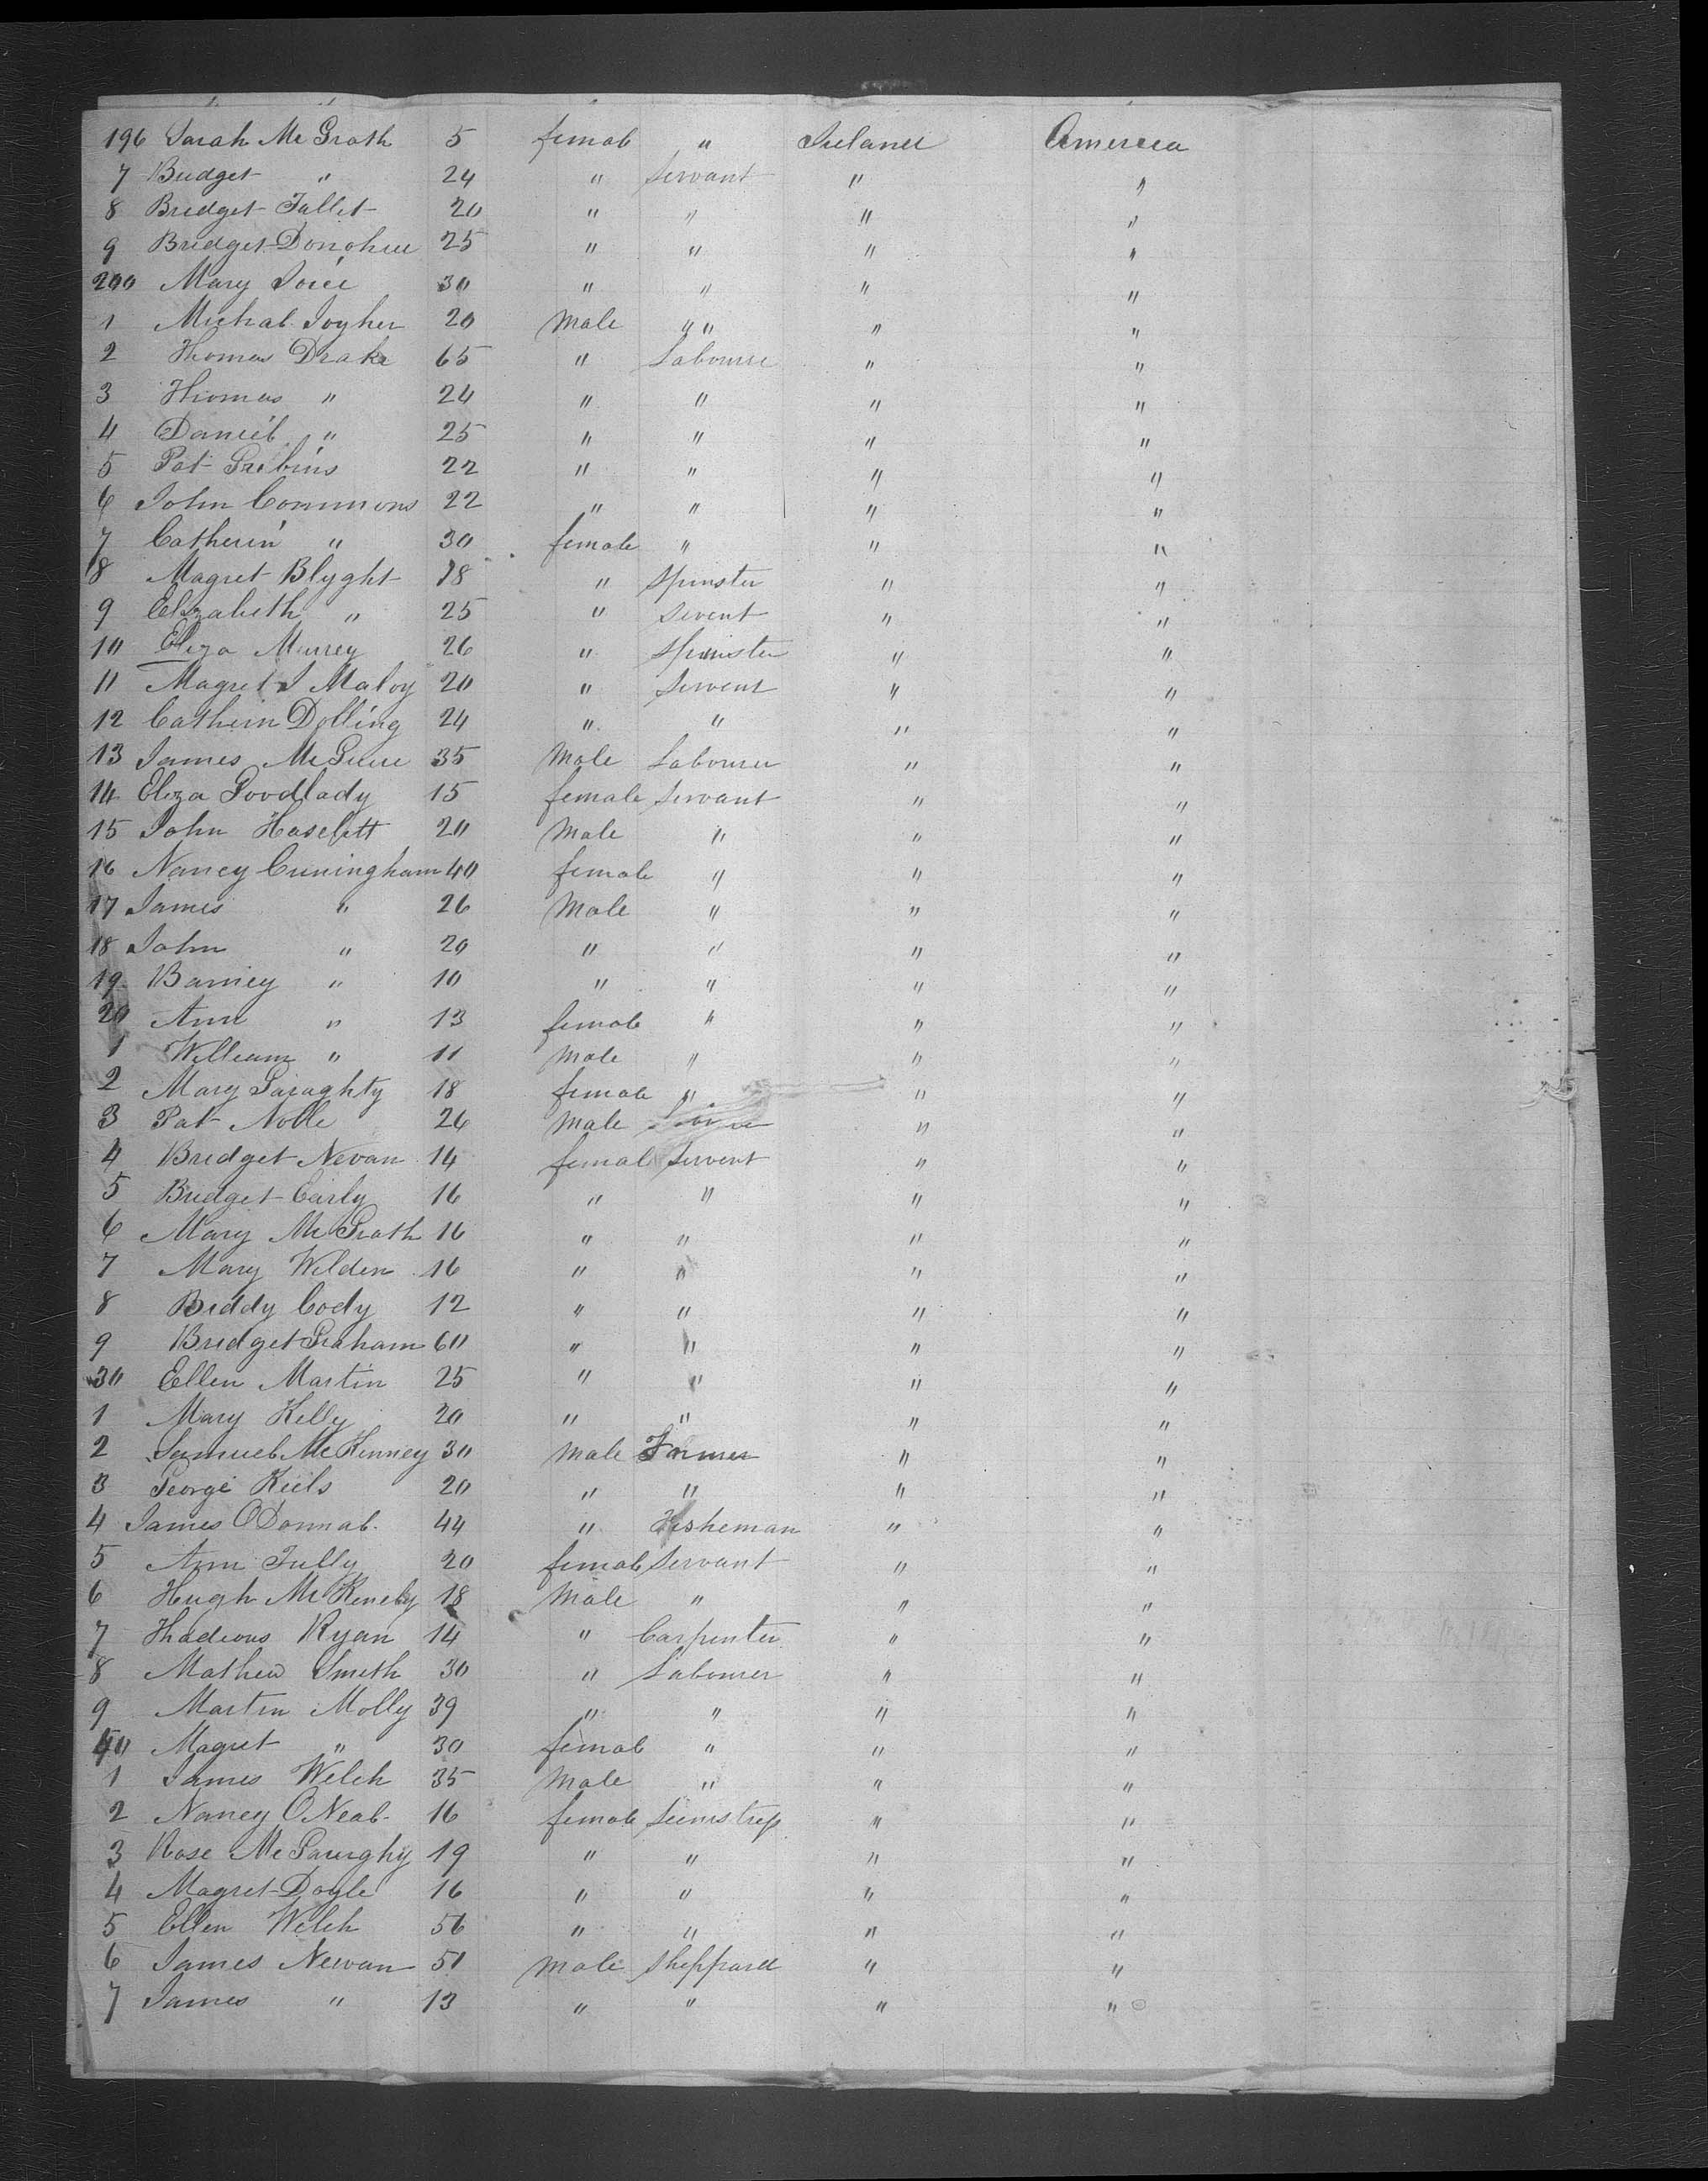 196 Sarah Mc Grath 5 female " Ireland America
7 Bridget " 24 " Servant " "
8 Bridget Tallet 20 " " " "
9 Bridget Donohue 25 " " " "
200 Mary 30 " " " "
1 Michal Joyher 20 Male " " " "
2 Thomas Drake 65 " Labourer " "
3 Thomas " 24 " " " "
4 Daniel " 25 " " " "
5 Pat Gribins 22 " " " "
6 John Commons 22 " " " "
7 Catherin " 30 female " " "
8 Magret Blyght 18 " Spinster " "
9 Elizabeth " 25 " Servent " "
10 Eliza Murrey 26 " Spinster " "
11 Magret Maloy 20 " Servent " "
12 Catherin Dolling 24 " " " "
13 James Mc Guire 35 Male Labourer " "
14 Eliza Goodlady 15 female Servant " "
15 John Haseltt 20 Male " " "
16 Nancy Cuningham 40 female " " "
17 James " 26 Male " " "
18 John " 20 " " " "
19 Barney " 10 " " " "
20 Ann " 13 female " " "
1 William " 11 Male " " "
2 Mary Garaghty 18 female " " "
3 Pat Nolle 26 Male " "
4 Bridget Nevan 14 female Servent " "
5 Bridget Carly 16 " " " "
6 Mary Mc Grath 16 " " " "
7 Mary Wilden 16 " " " "
8 Biddy Cody 12 " " " "
9 Bridget Graham 60 " " " "
30 Ellen Martin 25 " " " "
1 Mary Kelly 20 " " " "
2 Samuel Mc Kinney 30 Male Farmer " "
3 George Kiels 20 " " " "
4 James O Donnal 44 " Fisheman " "
5 Ann Tully 20 female Servant " "
6 Hugh Mc Kineley 18 Male " " "
7 Thadeous Ryan 14 " Carpenter " "
8 Mathew Smith 30 " Labourer " "
9 Martin Molly 39 " " " "
40 Magret " 30 female " " "
1 James Welch 35 Male " " "
2 Nancy O Neal 16 female Seemstress " "
3 Rose Mc Gaurghy 19 " " " "
4 Magret Doyle 16 " " " "
5 Ellen Welch 56 " " " "
6 James Newan 51 Male Sheppard " "
7 James " 13 " " " "